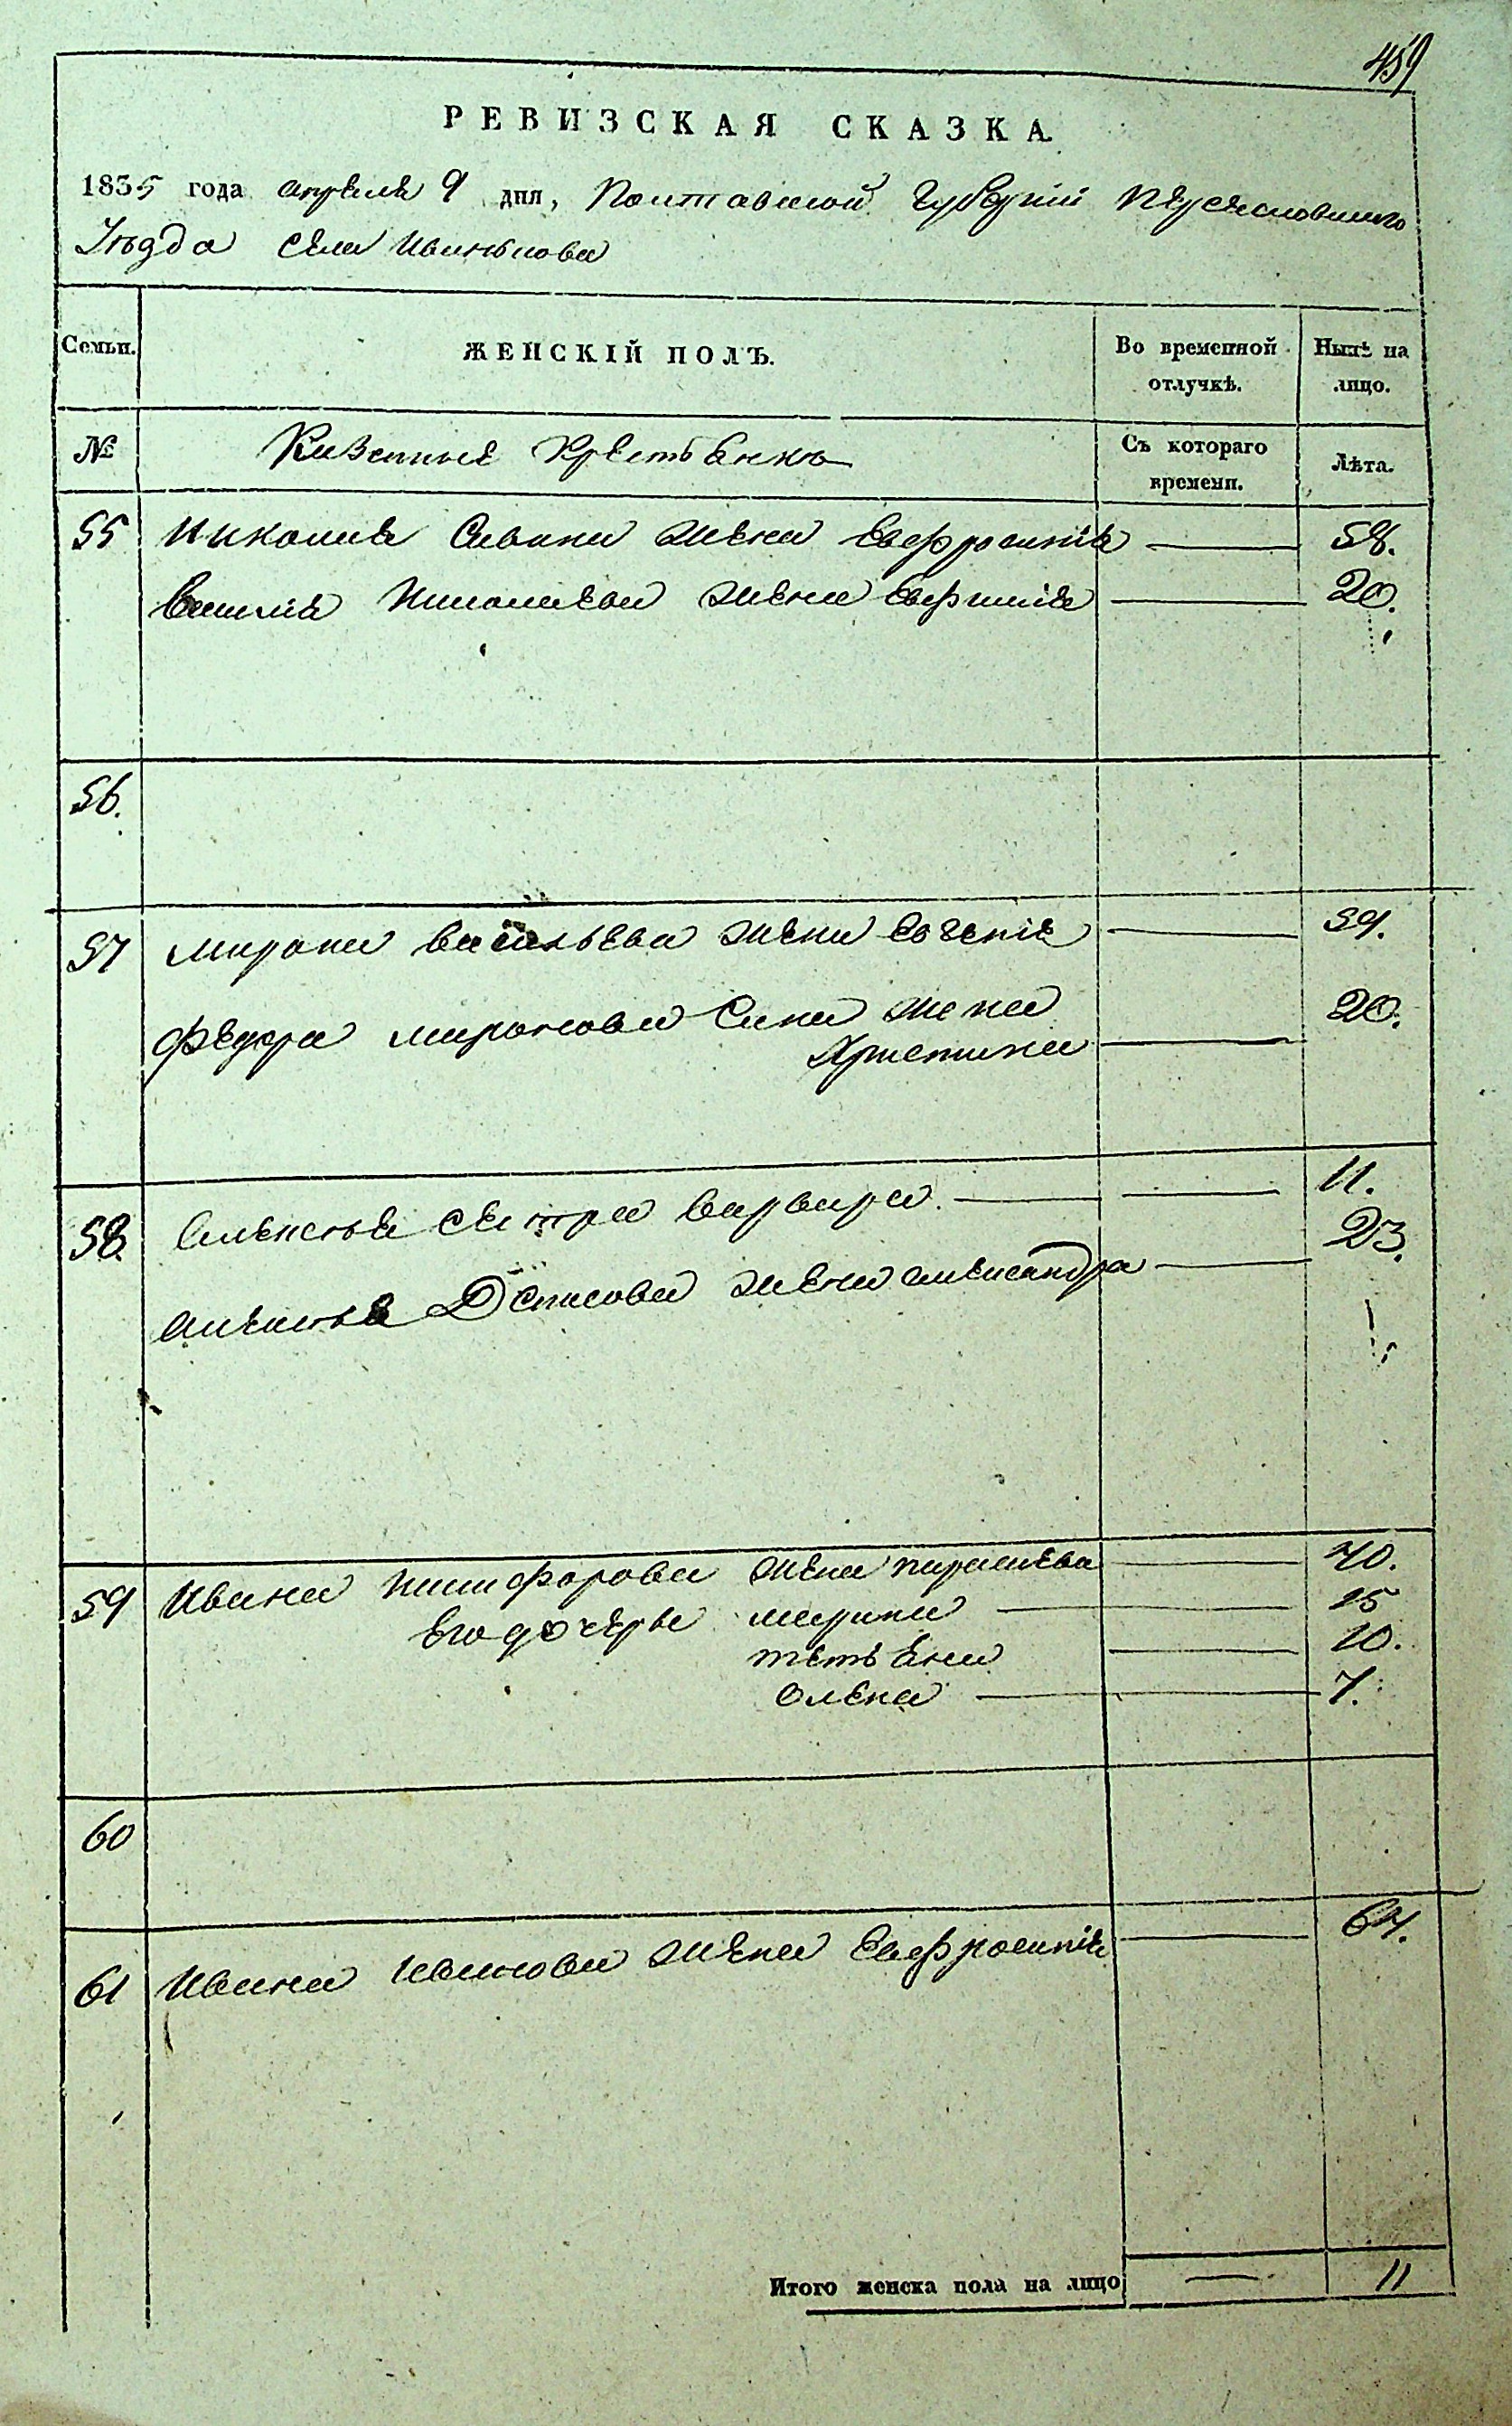 459
РЕВИЗСКАЯ СКАЗКА
1835 года апреля 9 дня, Полтавской Губернии Переяславского
Уезда села Иванькова
Семьи. ЖЕНСКІЙ ПОЛЪ. Во временной отлучкѣ. Нынѣ на лицо.
№ Казенные Крестьянки Съ котораго времени. Лѣта.
55 Николая Савина жена Евфросинія 58.
Василія Николаева жена Евфимія 20.
56.
57 Мирона Васильева жена Евгенія 59.
Федора Миронова Сина жена 20.
Христина
58. Алексея сестра Варвара 11.
Алексея Денисова жена Александра 23.
59 Ивана Никифорова жена Параскева 40.
его дочери Марина 15
Тетьяна 10.
Олена 7.
60
61 Ивана Иванова жена Евфросинія 67.
Итого женска пола на лицо 11